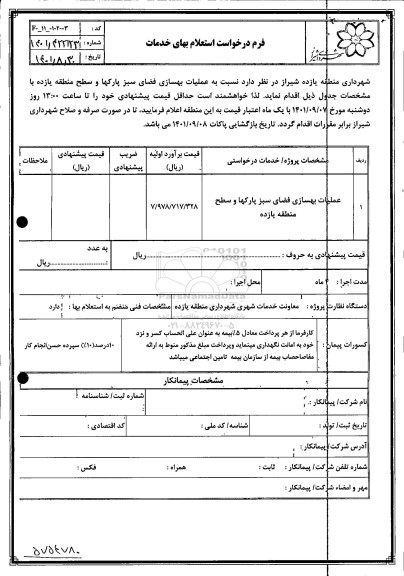 فرم درخواست استعلام بهای خدمات
کد :
شماره :
تاریخ :
شهرداری منطقه یازده شیراز در نظر دارد نسبت به عملیات بهسازی فضای سبز پارکها و سطح منطقه یازده با
مشخصات جدول ذیل اقدام نماید. لذا خواهشمند است حداقل قیمت پیشنهادی خود را تا ساعت ۱۳:۰۰ روز
دوشنبه مورخ ۱۴۰۱/۰۹/۰۷ با یک ماه اعتبار قیمت به این منطقه اعلام فرمایید، تا در صورت صرفه و صلاح شهرداری
شیراز برابر مقررات اقدام گردد. تاریخ بازگشایی پاکات ۱۴۰۱/۰۹/۰۸ می باشد.
ردیف مشخصات پروژه/ خدمات درخواستی قیمت برآورد اولیه (ریال) ضریب پیشنهادی قیمت پیشنهادی (ریال) ملاحظات
۱ عملیات بهسازی فضای سبز پارکها و سطح منطقه یازده ۷/۹۷۸/۷۱۷/۳۲۸
قیمت پیشنهادی به حروف : ریال به عدد : ریال
مدت اجرا : ۴ ماه محل اجرا :
دستگاه نظارت پروژه : معاونت خدمات شهری شهرداری منطقه یازده مشخصات فنی منضم به استعلام بها : دارد
کسورات پیمان : کارفرما از هر پرداخت معادل ۵٪ بیمه به عنوان علی الحساب کسر و نزد
خود به امانت نگهداری مینماید وپرداخت مبلغ مذکور منوط به ارائه
مفاصاحساب بیمه از سازمان بیمه تامین اجتماعی میباشد
۱۰درصد(۱۰٪) سپرده حسن انجام کار
مشخصات پیمانکار
نام شرکت/ پیمانکار : شماره ثبت/ شناسنامه :
تاریخ ثبت/ تولد : شناسه/ کد ملی : کد اقتصادی :
آدرس شرکت/ پیمانکار :
شماره تلفن شرکت/ پیمانکار : ثابت : همراه : فکس :
مهر و امضاء شرکت/ پیمانکار :